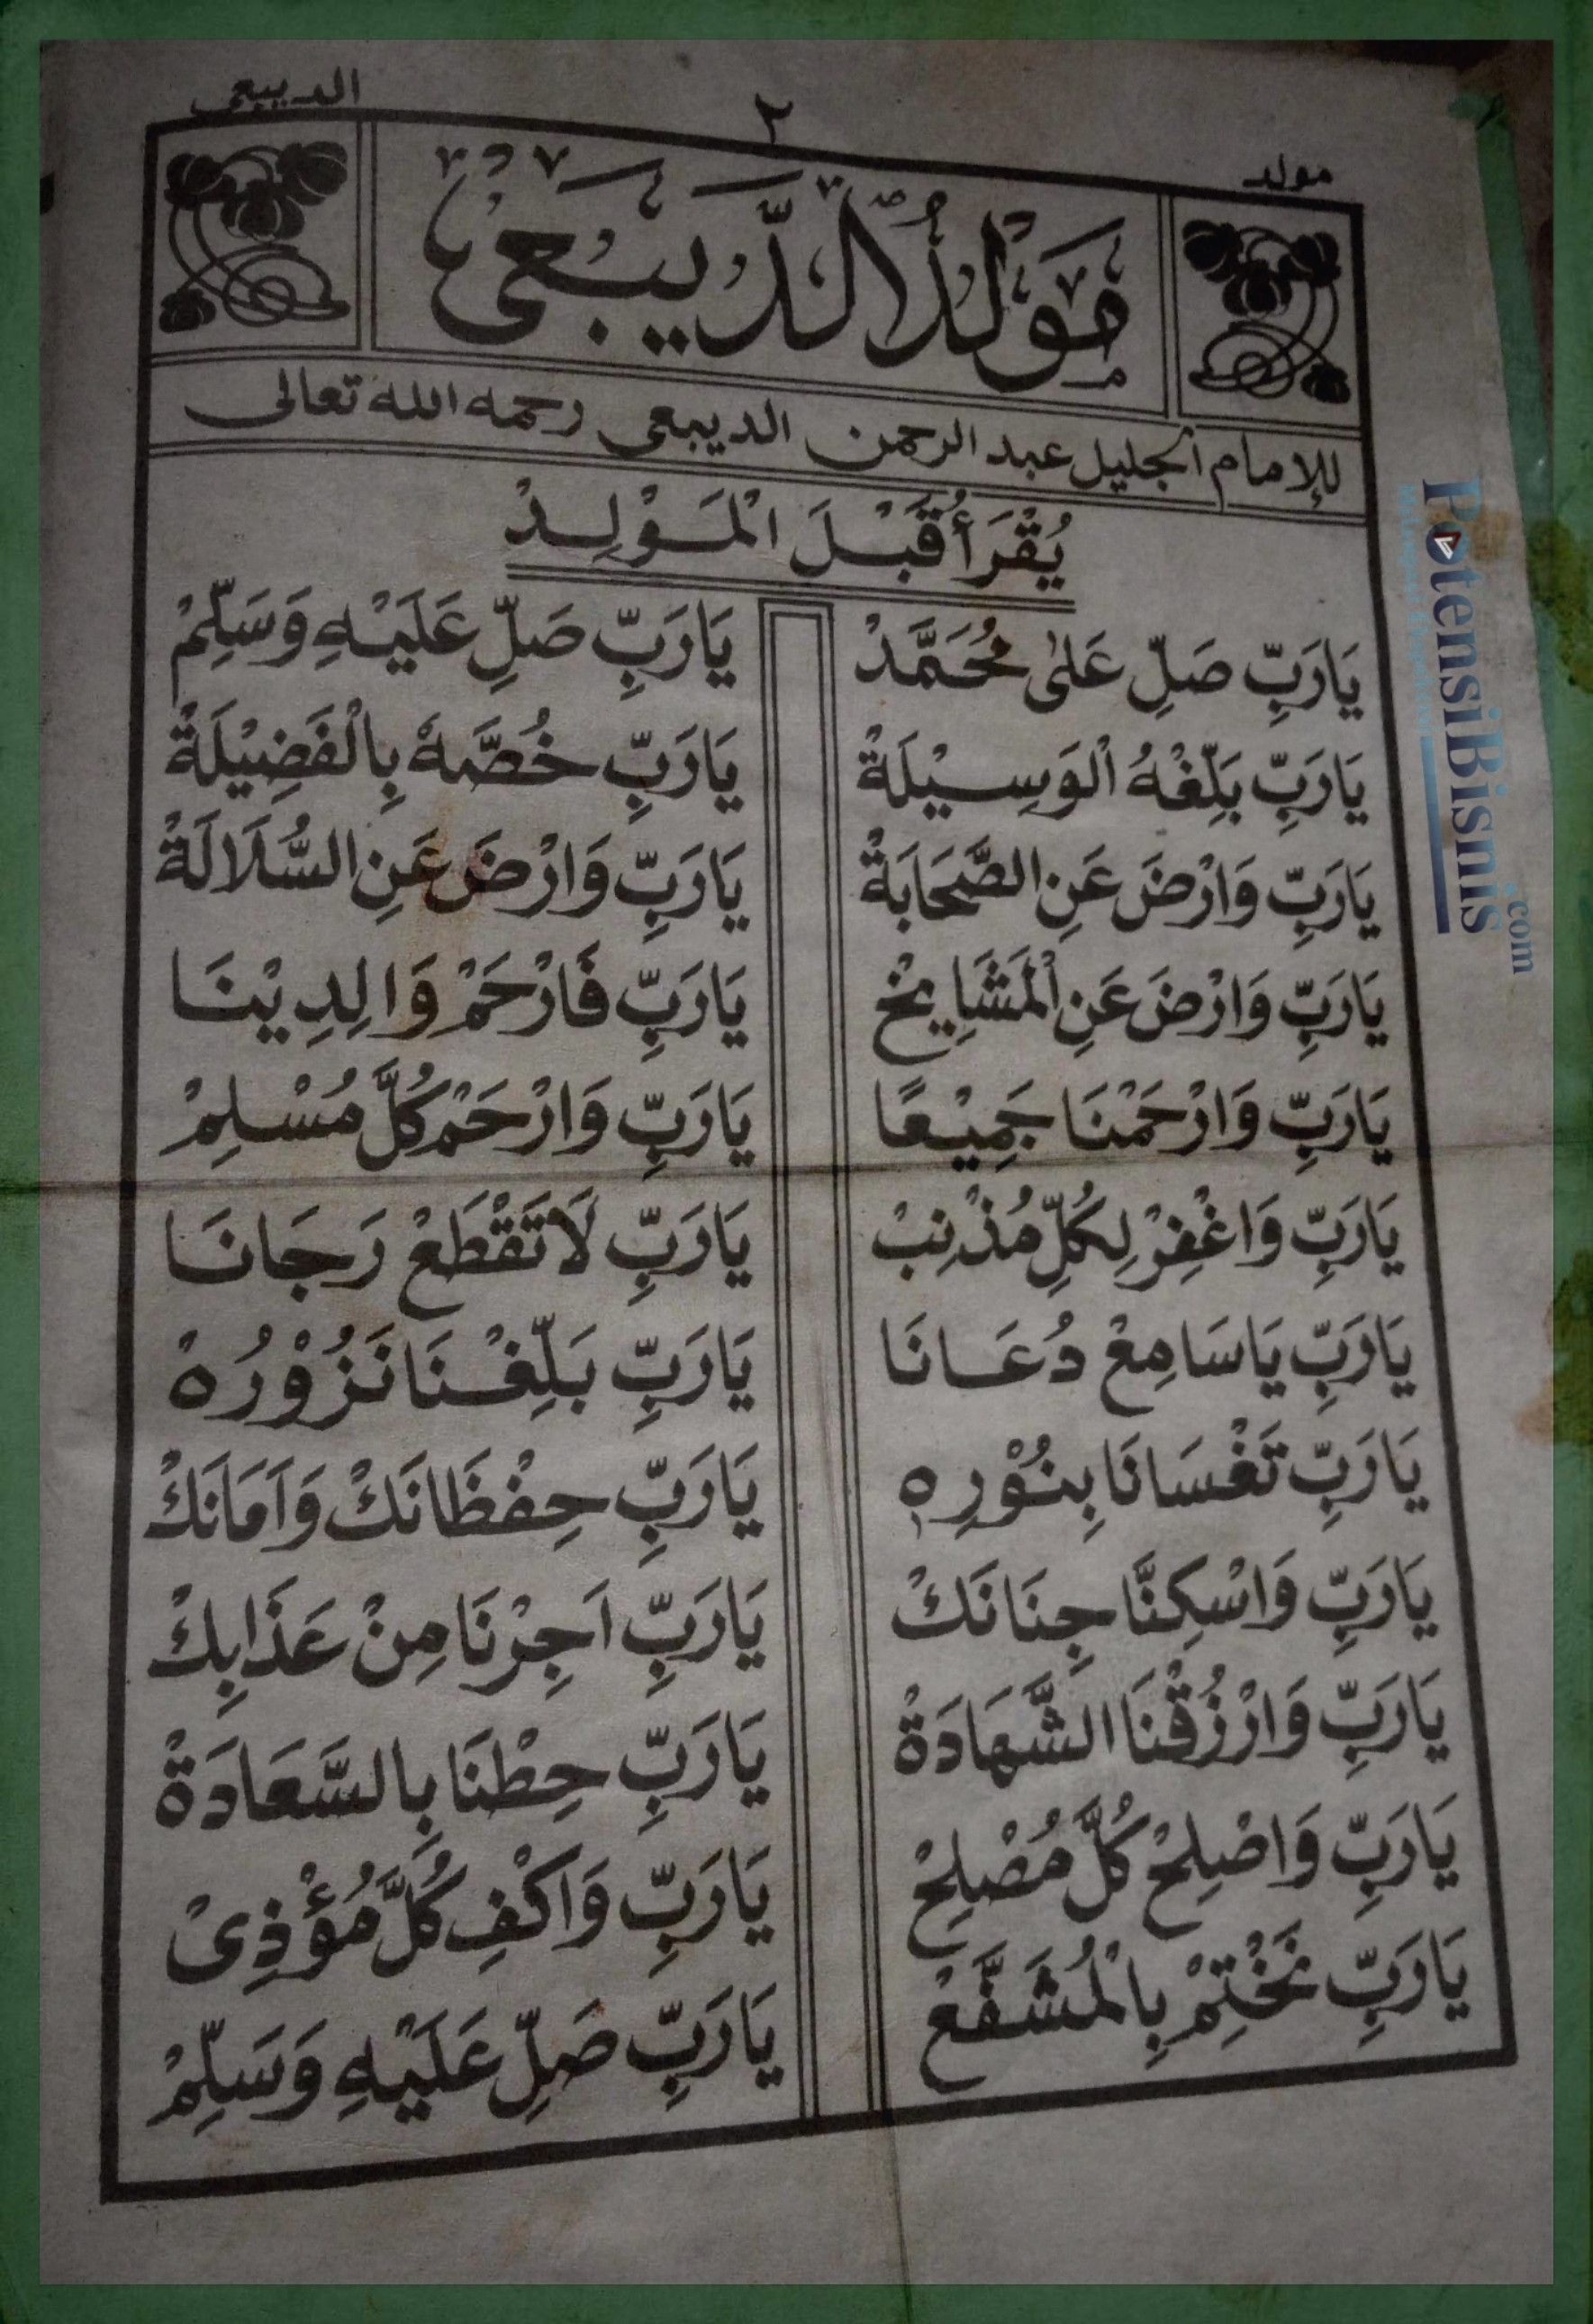 مولد ٢ الديبعى
مَوْلِدُ الدَّيْبَعِىْ
للإمام الجليل عبد الرحمن الديبعى رحمه الله تعالى
يُقْرَأُ قَبْلَ الْمَوْلِدْ
يَارَبِّ صَلِّ عَلىٰ مُحَمَّدْ يَارَبِّ صَلِّ عَلَيْهِ وَسَلِّمْ
يَارَبِّ بَلِّغْهُ الْوَسِيْلَةْ يَارَبِّ خُصَّهُ بِالْفَضِيْلَةْ
يَارَبِّ وَارْضَ عَنِ الصَّحَابَةْ يَارَبِّ وَارْضَ عَنِ السُّلَالَةْ
يَارَبِّ وَارْضَ عَنِ الْمَشَايِخْ يَارَبِّ فَارْحَمْ وَالِدِيْنَا
يَارَبِّ وَارْحَمْنَا جَمِيْعًا يَارَبِّ وَارْحَمْ كُلَّ مُسْلِمْ
يَارَبِّ وَاغْفِرْ لِكُلِّ مُذْنِبْ يَارَبِّ لَاتَقْطَعْ رَجَانَا
يَارَبِّ يَاسَامِعْ دُعَانَا يَارَبِّ بَلِّغْنَا نَزُوْرُهْ
يَارَبِّ تَغْسَانَا بِنُوْرِهِ يَارَبِّ حِفْظَانَكْ وَاَمَانَكْ
يَارَبِّ وَاسْكِنَّا جِنَانَكْ يَارَبِّ اَجِرْنَا مِنْ عَذَابِكْ
يَارَبِّ وَارْزُقْنَا الشَّهَادَةْ يَارَبِّ حِطْنَا بِالسَّعَادَةْ
يَارَبِّ وَاصْلِحْ كُلَّ مُصْلِحْ يَارَبِّ وَاكْفِ كُلَّ مُؤْذِىْ
يَارَبِّ نَخْتِمْ بِالْمُشَفَّعْ يَارَبِّ صَلِّ عَلَيْهِ وَسَلِّمْ
PotensiBisnis
.com